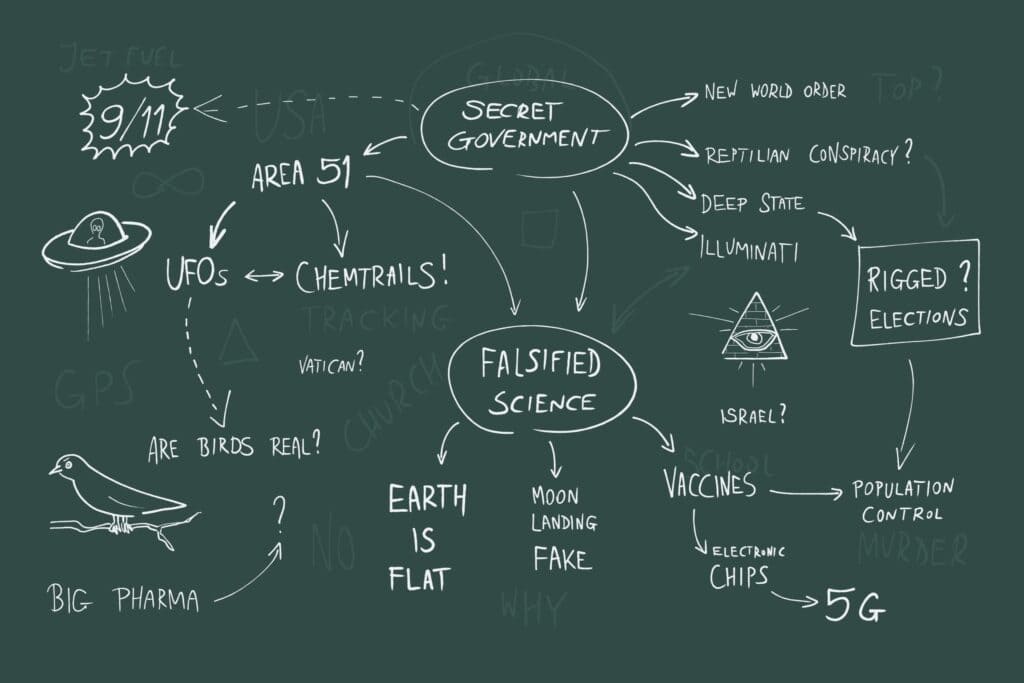 JET FUEL
9/11
USA
GLOBAL
SECRET
GOVERNMENT
NEW WORLD ORDER
TOP?
REPTILIAN CONSPIRACY?
DEEP STATE
ILLUMINATI
AREA 51
UFOs
CHEMTRAILS!
TRACKING
VATICAN?
GPS
CHURCH
RIGGED ?
ELECTIONS
FALSIFIED
SCIENCE
ISRAEL?
ARE BIRDS REAL?
?
BIG PHARMA
NO
EARTH
IS
FLAT
MOON
LANDING
FAKE
WHY
SCHOOL
VACCINES
POPULATION
CONTROL
MURDER
ELECTRONIC
CHIPS
5G